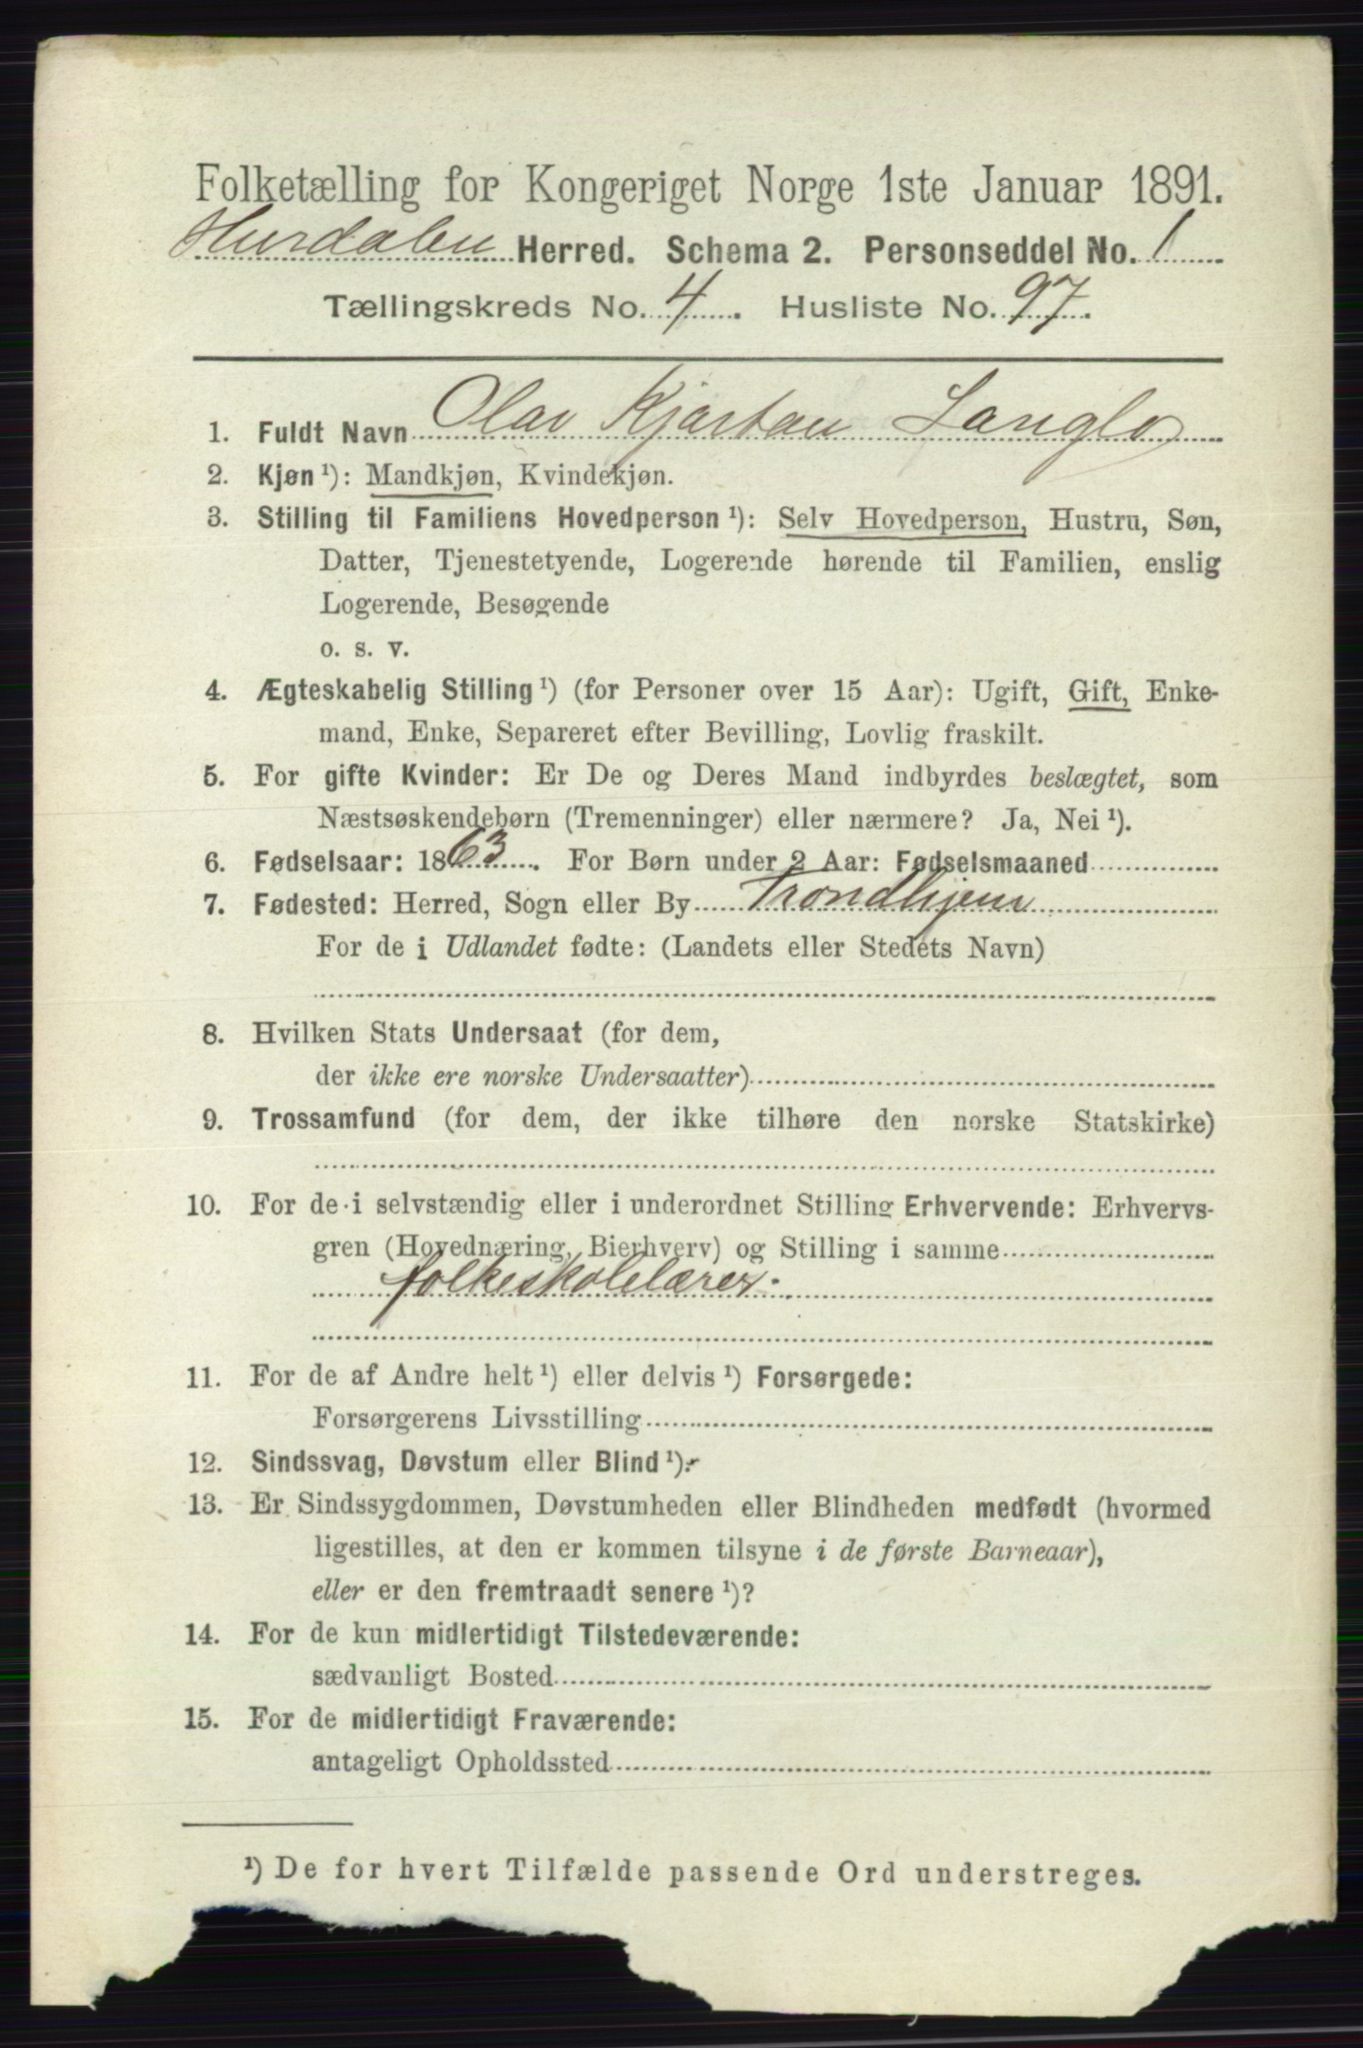 Folketælling for Kongeriget Norge 1ste Januar 1891.
Hurdalen Herred. Schema 2. Personseddel No. 1
Tællingskreds No. 4. Husliste No. 97.
1. Fuldt Navn Olav Kjartan Langlo
2. Kjøn ¹): Mandkjøn, Kvindekjøn.
3. Stilling til Familiens Hovedperson ¹): Selv Hovedperson, Hustru, Søn,
Datter, Tjenestetyende, Logerende hørende til Familien, enslig
Logerende, Besøgende
o. s. v.
4. Ægteskabelig Stilling ¹) (for Personer over 15 Aar): Ugift, Gift, Enke-
mand, Enke, Separeret efter Bevilling, Lovlig fraskilt.
5. For gifte Kvinder: Er De og Deres Mand indbyrdes beslægtet, som
Næstsøskendebørn (Tremenninger) eller nærmere? Ja, Nei ¹).
6. Fødselsaar: 1863. For Børn under 2 Aar: Fødselsmaaned
7. Fødested: Herred, Sogn eller By Trondhjem
For de i Udlandet fødte: (Landets eller Stedets Navn)
8. Hvilken Stats Undersaat (for dem,
der ikke ere norske Undersaatter)
9. Trossamfund (for dem, der ikke tilhøre den norske Statskirke)
10. For de i selvstændig eller i underordnet Stilling Erhvervende: Erhvervs-
gren (Hovednæring, Bierhverv) og Stilling i samme
folkeskolelærer.
11. For de af Andre helt ¹) eller delvis ¹) Forsørgede:
Forsørgerens Livsstilling
12. Sindssvag, Døvstum eller Blind ¹).
13. Er Sindssygdommen, Døvstumheden eller Blindheden medfødt (hvormed
ligestilles, at den er kommen tilsyne i de første Barneaar),
eller er den fremtraadt senere ¹)?
14. For de kun midlertidigt Tilstedeværende:
sædvanligt Bosted
15. For de midlertidigt Fraværende:
antageligt Opholdssted
¹) De for hvert Tilfælde passende Ord understreges.